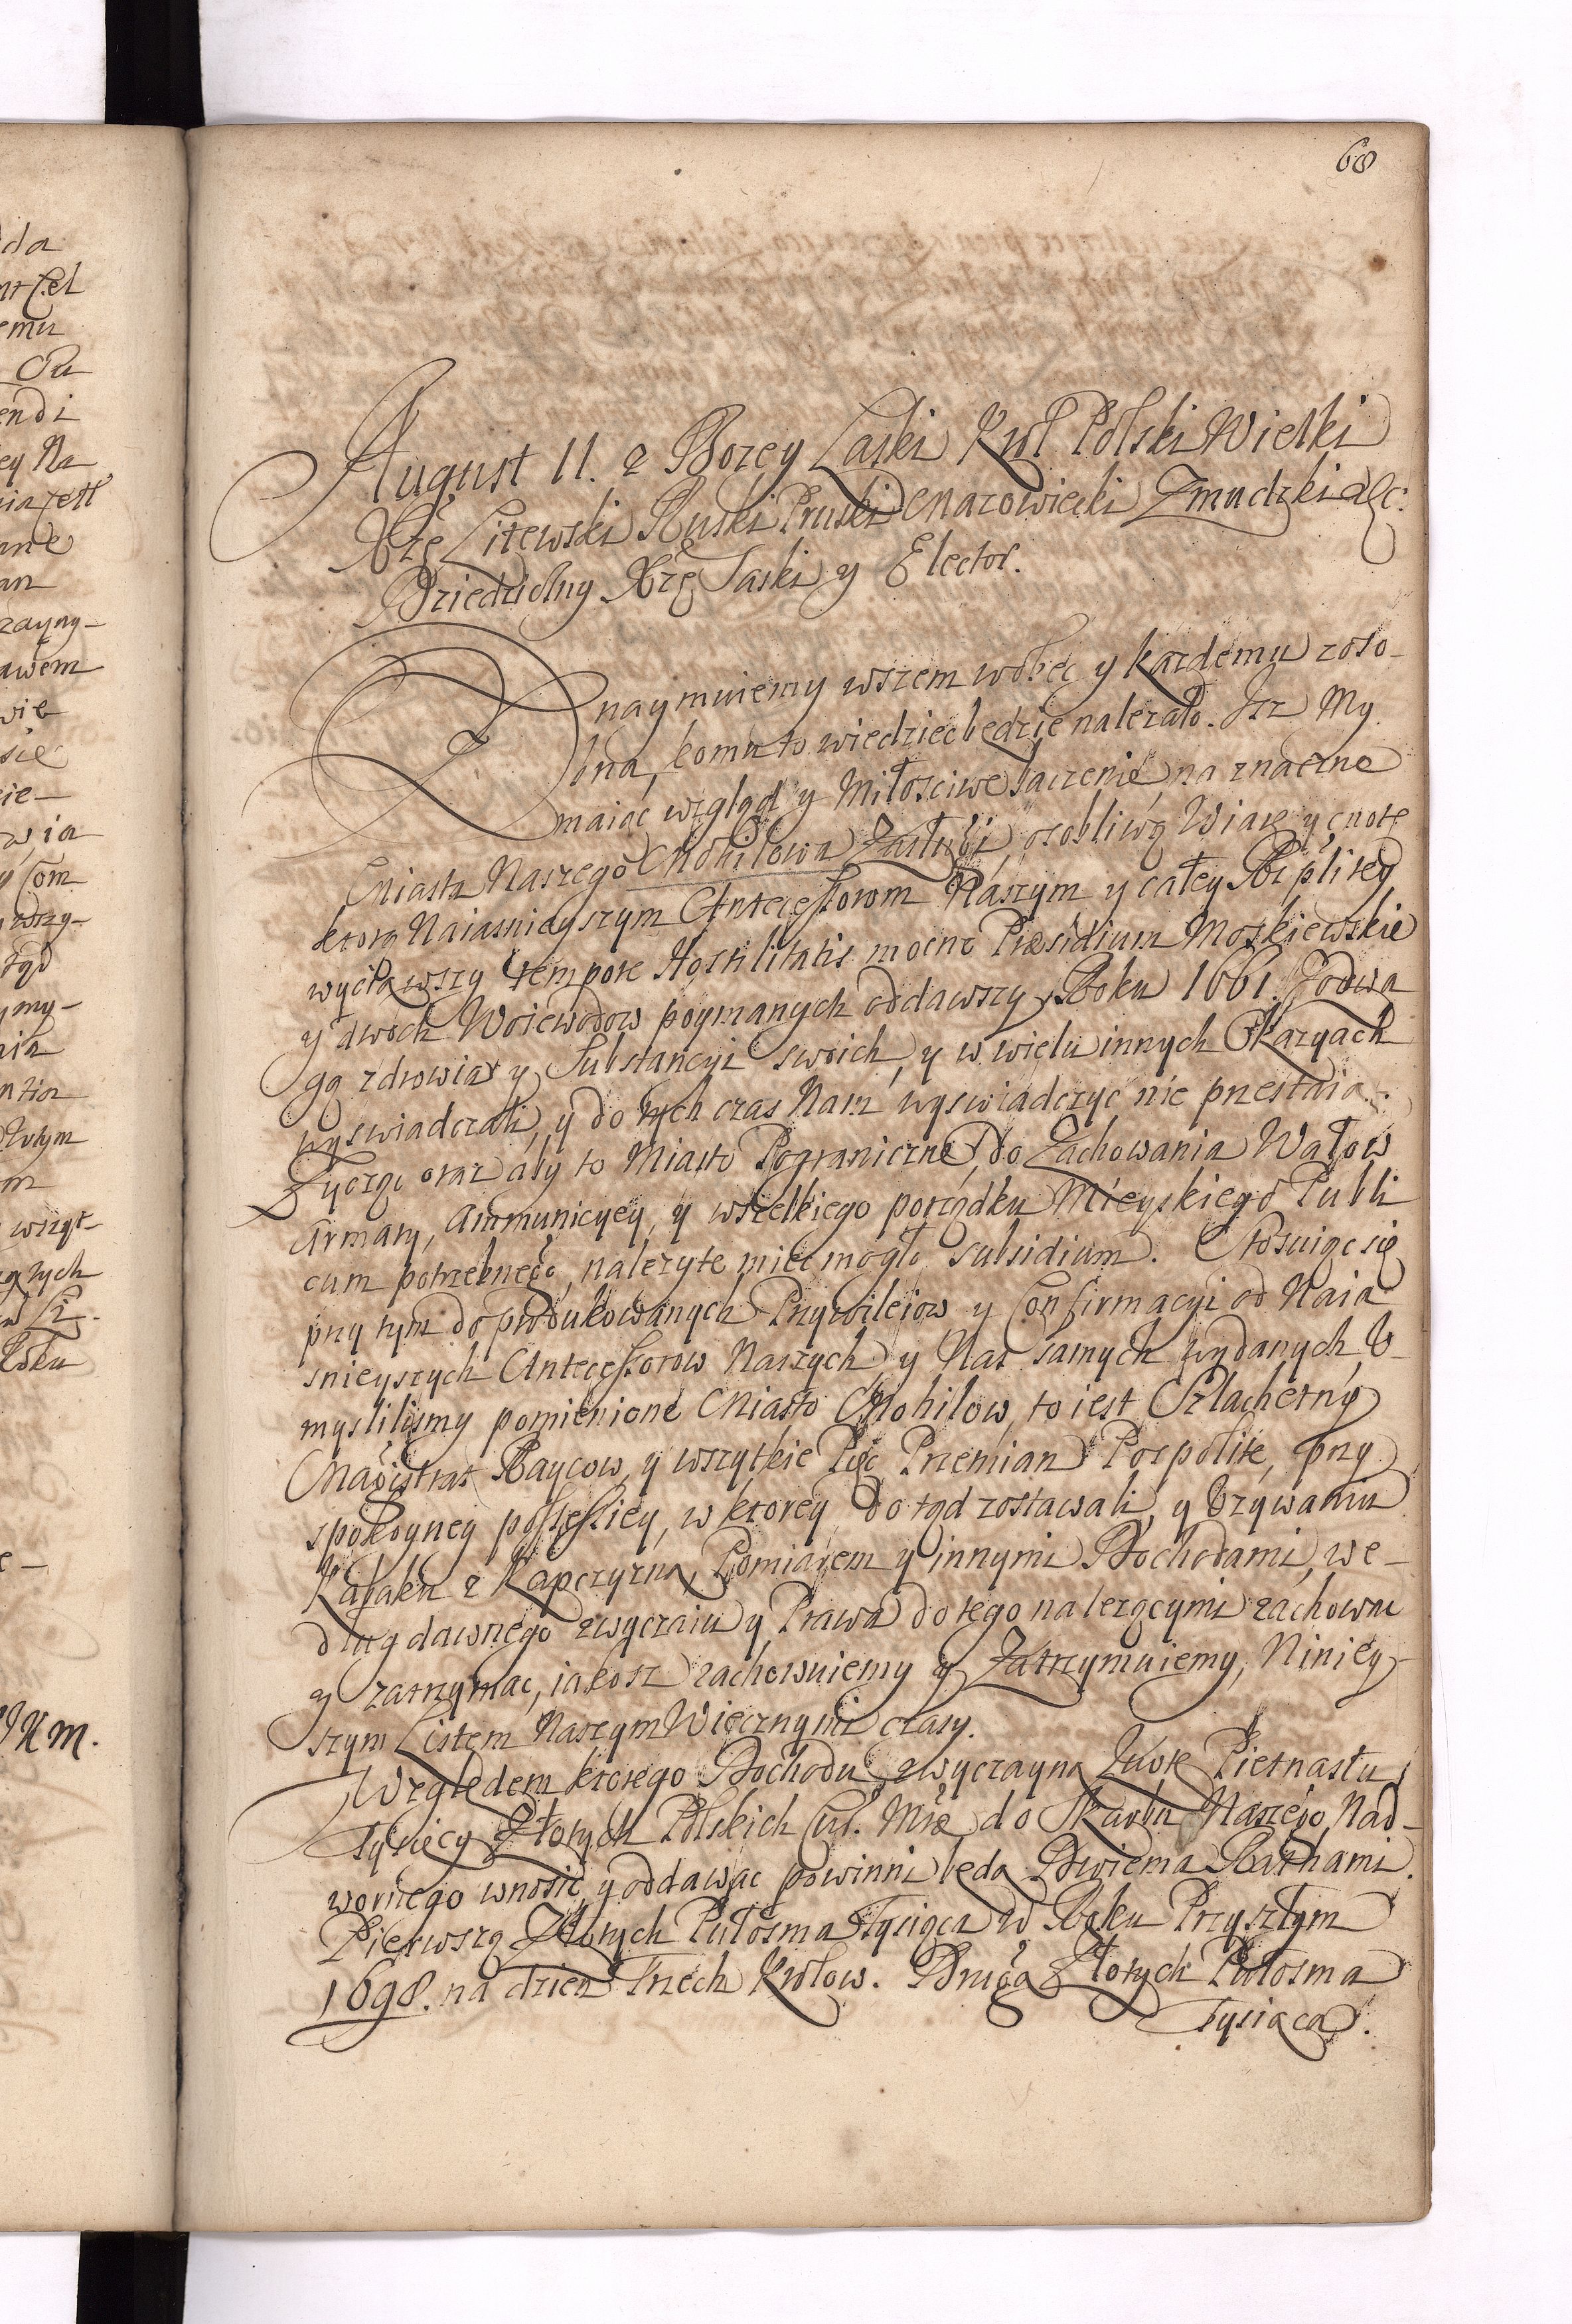 68
August II. z Bozey Łaski Krol Polski Wielki
Xżę Litewski Ruski Pruski Mazowiecki Zmudzki &c:
Dziedziczny Xżę Saski y Elector.
Znaymuiemy wszem wobec y kazdemu zoso-
bna, komu to wiedziec będzie nalezało. Isz My
maiąc wzgląd y Miłosciwe baczenie na znaczne
Miasta Naszego Mohilowa Zasługi, osobliwą Wiarę y cnotę
ktorą Naiasnieyszym Antecessorom Naszym y całey Rzplitey
wyciąwszy tempore Hostilitatis mocne Præsidium Moskiewskie
y dwoch Woiewodow poymanych oddawszy Roku 1661. Z odwa
gą zdrowia y Substancyi swoich, y w wielu innych Okazyach
wyswiadczali, y do tych czas Nam wyswiadczyc nie przestaią.
Zycząc oraz aby to Miasto Pograniczne, do Zachowania Wałow
Armaty, Ammunicyey, y wszelkiego porządku Mieyskiego Publi
cum potrzebnego, nalezyte miec mogło subsidium. Stosuiąc się
przy tym do produkowanych Przywileiow y Confirmacyi od Naia
snieyszych Antecessorow Naszych y Nas samych wydanych, V-
myslilismy pomienione Miasto Mohilow, to iest Szlachetny
Magistrat Raycow, y wszytkie Pięc Przemian Pospolite, przy
spokoyney possessiey, w ktorey do tąd zostawali, y Vzywaniu
Kabaku z Kapczyzną, Pomiarem y innymi Dochodami, we-
dług dawnego zwyczaiu y Prawa do tego nalezącymi zachowac
y zatrzymac, iakosz zachowuiemy y Zatrzymuiemy, Niniey-
szym Listem Naszym Wiecznymi czasy.
Względem ktorego Dochodu zwyczayną Kwotę Pietnastu
Tysięcy Złotych Polskich do Skarbu Naszego Nad-
wornego wnosic y oddawac powinni będą Dwiema Rathami
Pierwszą Złotych Pułosma Tysiąca w Roku Przyszłym
1698. na dzien Trzech Krolow. Drugą Złotych Pułosma
Tysiąca.